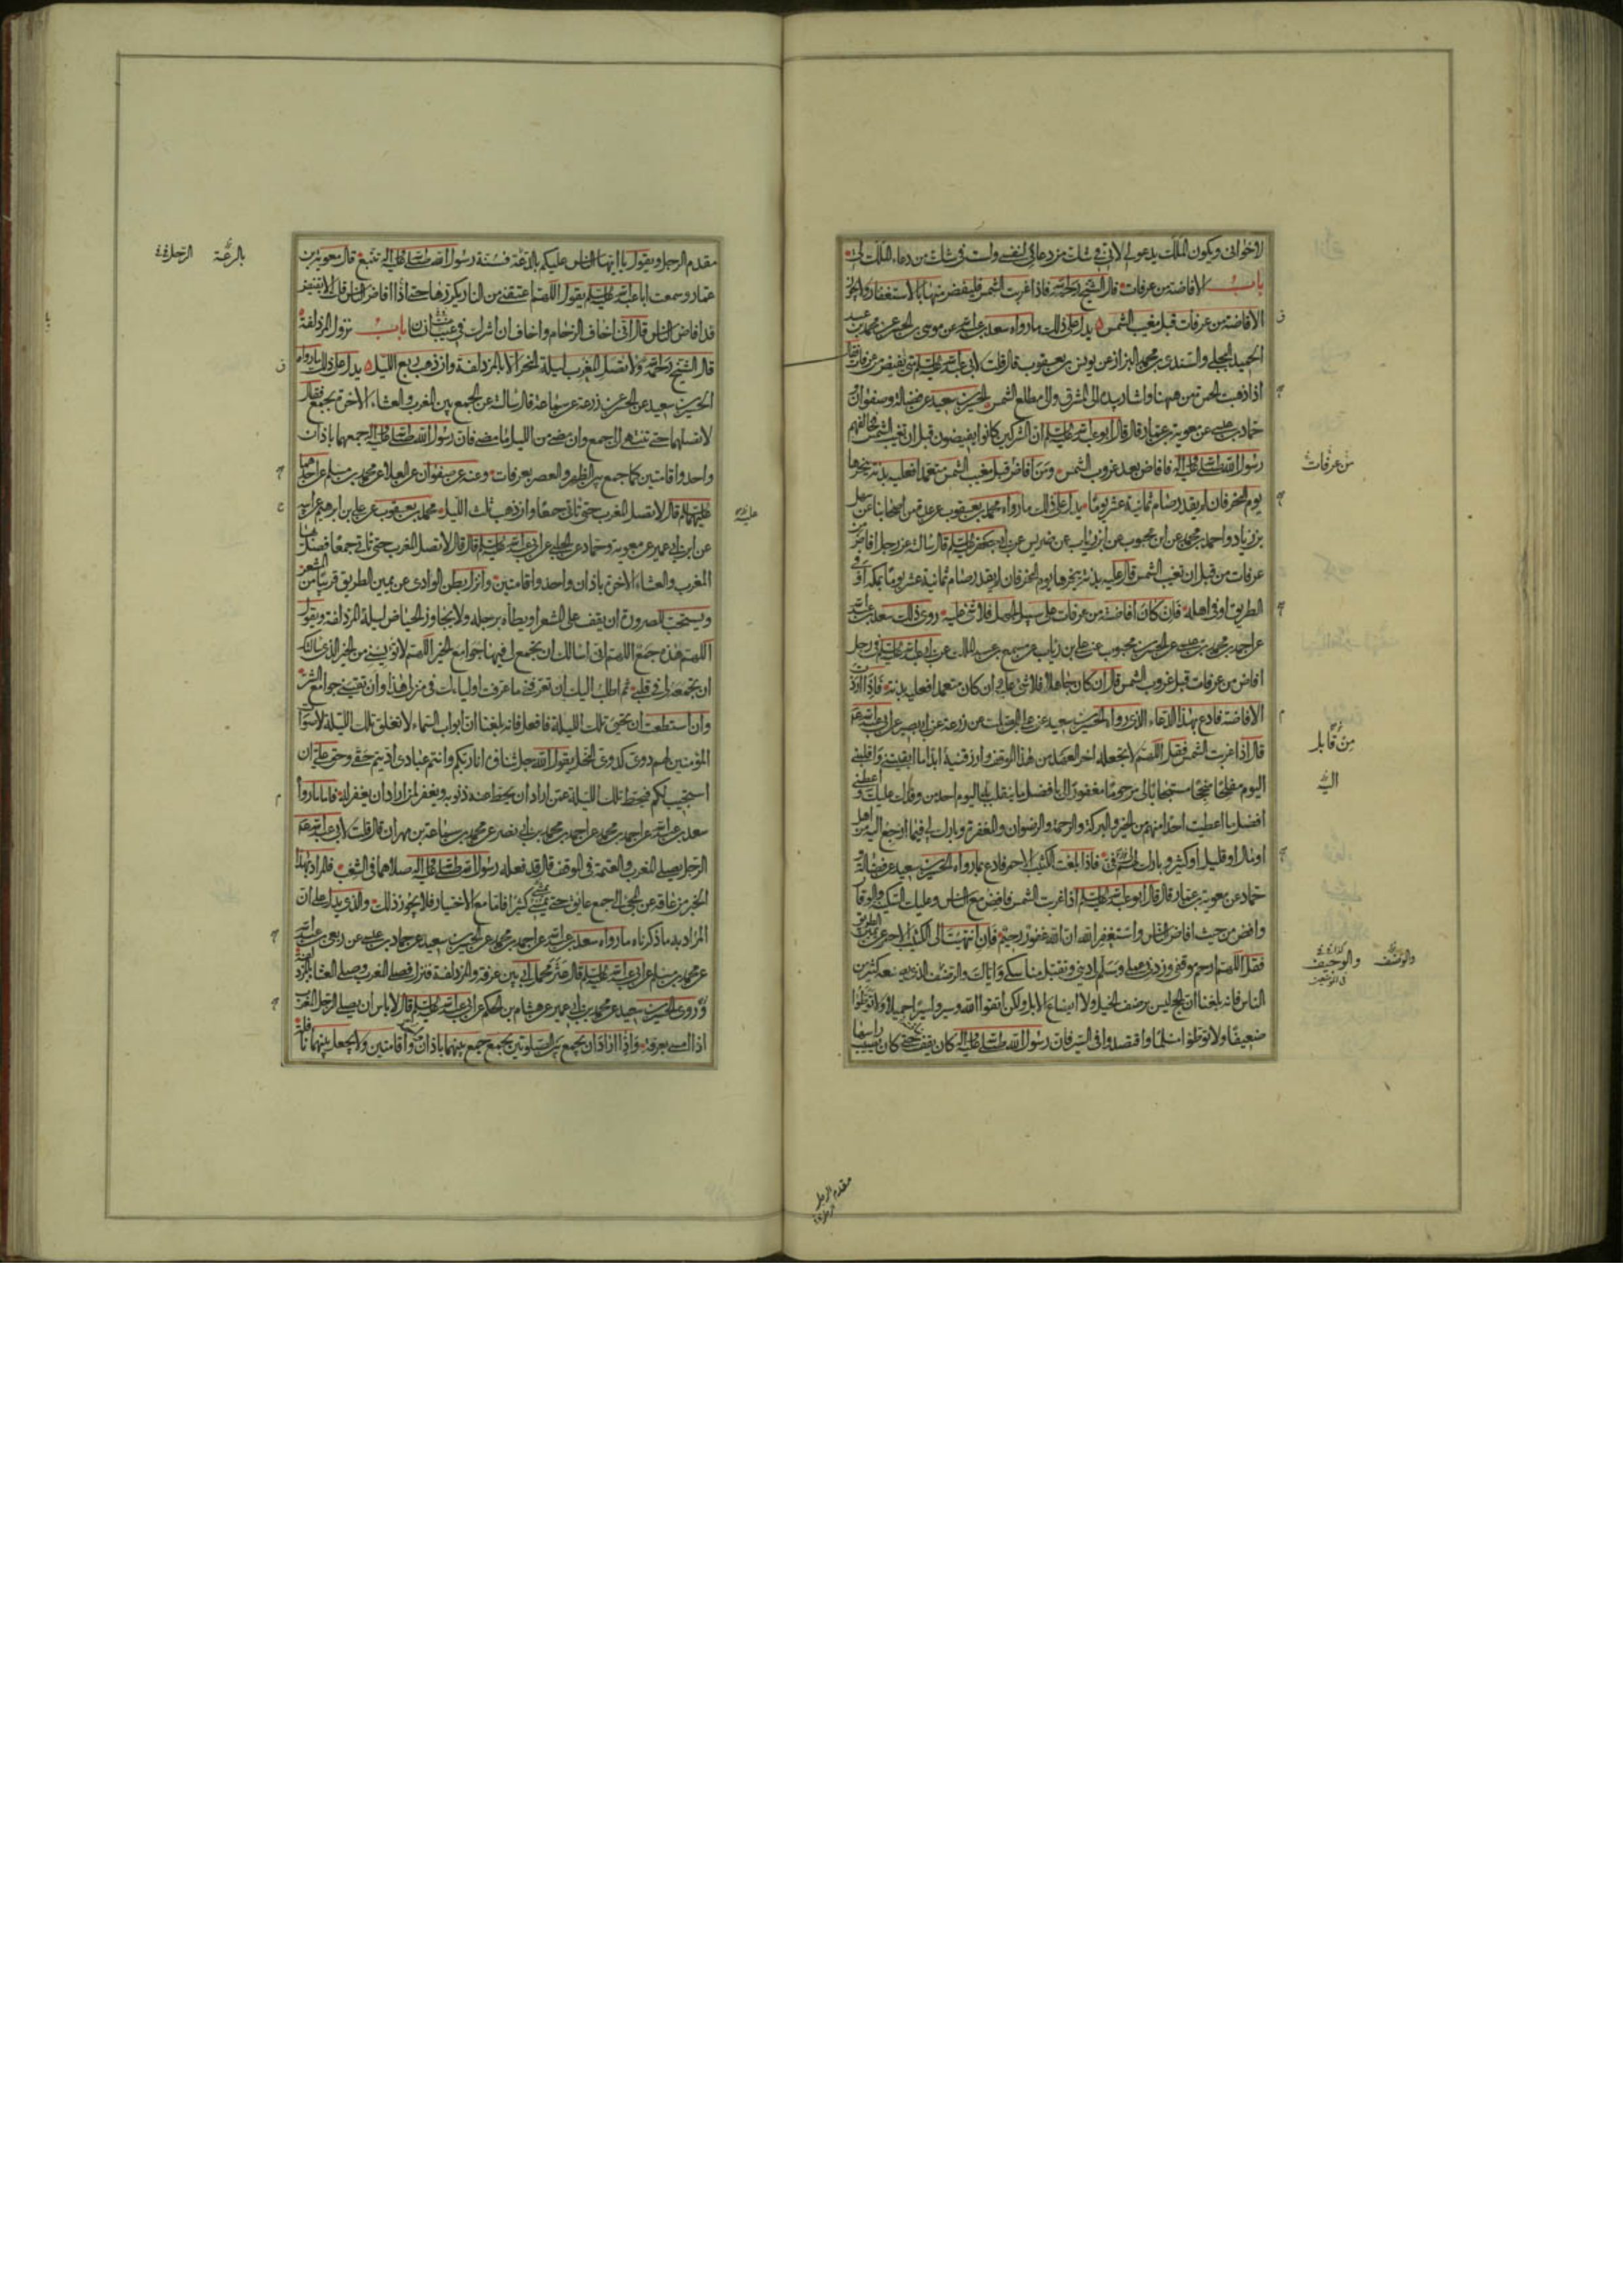 لاخواني ويكون الملك يدعو لي لاني في شك من دعائي لنفسي ولست في شك من دعاء الملك لي
باب الافاضة من عرفات قال الشيخ رحمه الله فاذا غربت الشمس فليفض منها بالاستغفار ولا يجوز
الافاضة من عرفات قبل مغيب الشمس يدل على ذلك ما رواه سعد بن عبد الله عن موسى بن الحسن عن محمد بن عبد
الحميد البجلي والسندي بن محمد البزاز عن يونس بن يعقوب قال قلت لابي عبد الله عليه السلم متى تفيض من عرفات فقال
اذا ذهبت الحمرة من ههنا واشار بيده الى المشرق والى مطلع الشمس الحسين بن سعيد عن فضالة وصفوان و
حماد بن عيسى عن معوية بن عمار قال قال ابو عبد الله عليه السلم ان المشركين كانوا يفيضون قبل ان تغيب الشمس فخالفهم
رسول الله صلى الله عليه واله فافاض بعد غروب الشمس ومن افاض قبل مغيب الشمس متعمدا فعليه بدنة ينحرها
يوم النحر فان لم يقدر صام ثمانية عشر يوما يدل على ذلك ما رواه محمد بن يعقوب عن عدة من اصحابنا عن سهل
بن زياد واحمد بن محمد عن ابن محبوب عن ابن رئاب عن ضريس عن ابي جعفر عليه السلم قال سالته عن رجل افاض من
عرفات من قبل ان تغيب الشمس قال عليه بدنة ينحرها يوم النحر فان لم يقدر صام ثمانية عشر يوما بمكة او في
الطريق او في اهله فان كان افاضته من عرفات على سبيل الجهل فلا شئ عليه روى ذلك سعد بن عبد الله
عن احمد بن محمد بن عيسى عن الحسن بن محبوب عن علي بن رئاب عن مسمع بن عبد الملك عن ابي عبد الله عليه السلم في رجل
افاض من عرفات قبل غروب الشمس قال ان كان جاهلا فلا شئ عليه وان كان متعمدا فعليه بدنة فاذا اردت
الافاضة فادع بهذا الدعاء الذي رواه الحسين بن سعيد عن علي بن الصلت عن زرعة عن ابي بصير عن ابي عبد الله عم
قال اذا غربت الشمس فقل اللهم لا تجعله اخر العهد من هذا الموقف وارزقنيه ابدا ما ابقيتني واقلبني
اليوم مفلحا منجحا مستجابا لي مرحوما مغفورا لي بافضل ما ينقلب به اليوم احد من وفدك عليك واعطني
افضل ما اعطيت احدا منهم من الخير والبركة والرحمة والرضوان والمغفرة وبارك لي فيما ارجع اليه من اهل
او مال او قليل او كثير وبارك لهم في فاذا بلغت الكثيب الاحمر فادع بما رواه الحسين بن سعيد عن فضالة و
حماد عن معوية بن عمار قال قال ابو عبد الله عليه السلم اذا غربت الشمس فافض مع الناس وعليك السكينة والوقار
وافض من حيث افاض الناس واستغفر الله ان الله غفور رحيم فان انتهيت الى الكثيب الاحمر عن يمين الطريق
فقل اللهم ارحم موقفي وزد في عملي وسلم لي ديني وتقبل مناسكي واياك والوضف الذي يصنعه كثير من
الناس فانه بلغنا ان الحج ليس بوضف الخيل ولا ايضاع الابل ولكن اتقوا الله وسيروا سيرا جميلا ولا توطئوا
ضعيفا ولا توطئوا مسلما واقتصدوا في السير فان رسول الله صلى الله عليه واله كان يقف حتى كان يصيب راسها
من عرفات
من قابل
اليه
مقدم الرحل
مقدم الرجل ويقول يا ايها الناس عليكم بالدعة فسنة رسول الله صلى الله عليه واله تتبع قال معوية بن
عمار وسمعت ابا عبد الله عليه السلم يقول اللهم اعتقني من النار يكررها حتى اذا افاض الناس قلت الا تفيض
قد افاض الناس قال اني اخاف الزحام واخاف ان اشرك في عنت انسان باب نزول المزدلفة
قال الشيخ رحمه الله ولا تصل المغرب ليلة النحر الا بالمزدلفة وان ذهب ربع الليل يدل على ذلك ما رواه
الحسين بن سعيد عن الحسن عن زرعة عن سماعة قال سالته عن الجمع بين المغرب والعشاء الاخرة بجمع فقال
لا تصلهما حتى تنتهي الى جمع وان مضى من الليل ما مضى فان رسول الله صلى الله عليه واله جمعهما باذان
واحد واقامتين كما جمع بين الظهر والعصر بعرفات وعنه عن صفوان عن العلا عن محمد بن مسلم عن احدهما
عليهما السلم قال لا تصل المغرب حتى تاتي جمعا وان ذهب ثلث الليل محمد بن يعقوب عن علي بن ابرهيم عن ابيه
عن ابن ابي عمير عن معوية وحماد عن الحلبي عن ابي عبد الله عليه السلم قال قال لا تصل المغرب حتى تاتي جمعا فصل بها
المغرب والعشاء الاخرة باذان واحد واقامتين وانزل ببطن الوادي عن يمين الطريق قريبا من المشعر
ويستحب للصرورة ان يقف على المشعر او يطاه برجله ولا يجاوز الحياض ليلة المزدلفة ويقول
اللهم هذه جمع اللهم اني اسالك ان تجمع لي فيها جوامع الخير اللهم لا تؤيسني من الخير الذي سالتك
ان تجمعه لي في قلبي ثم اطلب اليك ان تعرفني ما عرفت اولياءك في منزلي هذا وان تقيني جوامع الشر
وان استطعت ان تحيي تلك الليلة فافعل فانه بلغنا ان ابواب السماء لا تغلق تلك الليلة لاصوات
المؤمنين لهم دوي كدوي النحل يقول الله جل ثناؤه انا ربكم وانتم عبادي اديتم حقي وحق علي ان
استجيب لكم فيحط تلك الليلة عمن اراد ان يحط عنه ذنوبه ويغفر لمن اراد ان يغفر له فاما ما رواه
سعد بن عبد الله عن احمد بن محمد عن احمد بن محمد بن ابي نصر عن محمد بن سماعة بن مهران قال قلت لابي عبد الله عم
الرجل يصلي المغرب والعتمة في الموقف قال قد فعله رسول الله صلى الله عليه واله صلاهما في الشعب فالمراد بهذا
الخبر من عاقه عن المجئ الى جمع عائق حتى يمضي كثيرا فاما مع الاختيار فلا يجوز ذلك والذي يدل على ان
المراد به ما ذكرناه ما رواه سعد بن عبد الله عن احمد بن محمد عن الحسين بن سعيد عن حماد بن عيسى عن ربعي بن عبد الله
عن محمد بن مسلم عن ابي عبد الله عليه السلم قال عثر محمل ابي بين عرفة والمزدلفة فنزل فصلى المغرب وصلى العشا بالمزدلفة
وروى الحسين بن سعيد عن محمد بن ابي عمير عن هشام بن الحكم عن ابي عبد الله عليه السلم قال لا باس ان يصلي الرجل المغرب
اذا امسى بعرفة واذا اراد ان يجمع بين الصلوتين بجمع جمع بينهما باذان واقامتين ولا يجعل بينهما نافلة